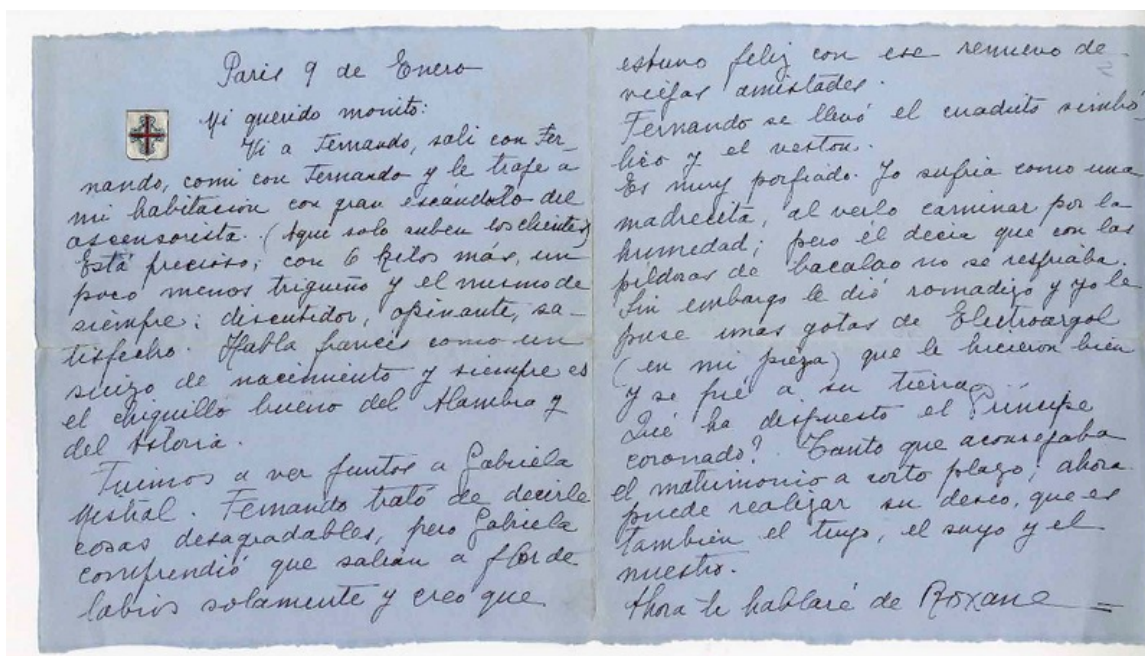 Paris 9 de Enero
Mi querido monito:
Vi a Fernando, sali con Fer-
nando, comi con Fernando y le traje a
mi habitacion con gran escándalo del
ascensorista. (Aqui solo suben los clientes)
Está precioso; con 6 kilos más, un
poco menos trigueño y el mismo de
siempre: discutidor, opinante, sa-
tisfecho. Habla francés como un
suizo de nacimiento y siempre es
el chiquillo bueno del Alambra y
del Astoria.
Fuimos a ver juntos a Gabriela
Mistral. Fernando trató de decirle
cosas desagradables, pero Gabriela
comprendió que salian a flor de
labios solamente y creo que
estuvo feliz con ese renuevo de
viejas amistades.
Fernando se llevó el cuadrito simbó-
lico y el veston.
Es muy porfiado. Yo sufria como una
madrecita, al verlo caminar por la
humedad; pero él decia que con las
pildoras de bacalao no se resfriaba.
Sin embargo le dió romadizo y yo le
puse unas gotas de Electroargol
(en mi pieza) que le hicieron bien
y se fué a su tierra.
Qué ha dispuesto el Príncipe
coronado? Tanto que aconsejaba
el matrimonio a corto plazo; ahora
puede realizar su deseo, que es
tambien el tuyo, el suyo y el
nuestro.
Ahora te hablaré de Roxane =